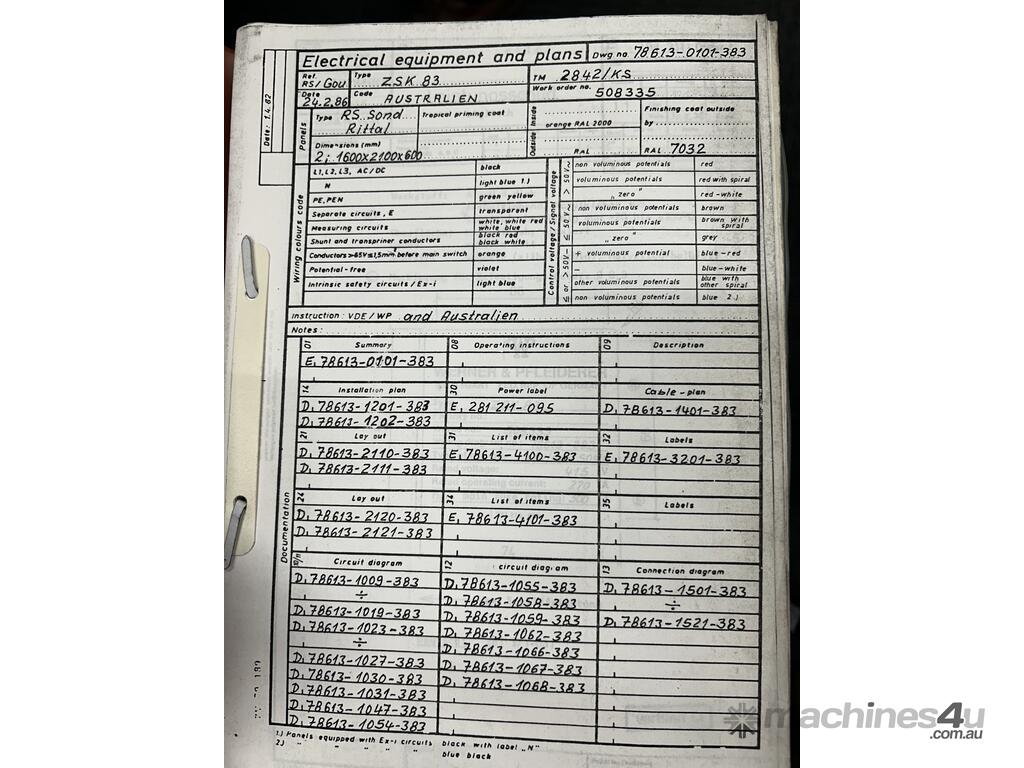 Electrical equipment and plans Dwg no. 78613-0101-383
Ref. RS/Gou Type ZSK 83 TM 2842/KS
Date 24.2.86 Code AUSTRALIEN Work order no. 508335
Date: 1.4.82
Panels
Type RS. Sond. Rittal
Tropical priming coat
Inside
orange RAL 2000
Finishing coat outside
by
Dimensions (mm)
2; 1600x2100x600
Outside
RAL
RAL 7032
Wiring colours code
L1, L2, L3, AC/DC black
N light blue 1.)
PE, PEN green yellow
Separate circuits, E transparent
Measuring circuits white, white red white blue
Shunt and transpriner conductors black red black white
Conductors >65V≤1,5mm² before main switch orange
Potential-free violet
Intrinsic safety circuits / Ex-i light blue
Control voltage / Signal voltage
> 50V~
non voluminous potentials red
voluminous potentials red with spiral
„zero" red-white
≤ 50V~
non voluminous potentials brown
voluminous potentials brown with spiral
„zero" grey
≤ or > 50V–
+ voluminous potential blue-red
– blue-white
other voluminous potentials blue with other spiral
non voluminous potentials blue 2.)
Instruction: VDE/WP and Australien
Notes:
Documentation
01 Summary
E, 78613-0101-383
08 Operating instructions
09 Description
14 Installation plan
D, 78613-1201-383
D, 78613-1202-383
30 Power label
E, 281 211-095
Cable-plan
D, 78613-1401-383
21 Lay out
D, 78613-2110-383
D, 78613-2111-383
31 List of items
E, 78613-4100-383
32 Labels
E, 78613-3201-383
24 Lay out
D, 78613-2120-383
D, 78613-2121-383
34 List of items
E, 78613-4101-383
35 Labels
10/11 Circuit diagram
D, 78613-1009-383
÷
D, 78613-1019-383
D, 78613-1023-383
÷
D, 78613-1027-383
D, 78613-1030-383
D, 78613-1031-383
D, 78613-1047-383
D, 78613-1054-383
12 circuit diagram
D, 78613-1055-383
D, 78613-1058-383
D, 78613-1059-383
D, 78613-1062-383
D, 78613-1066-383
D, 78613-1067-383
D, 78613-1068-383
13 Connection diagram
D, 78613-1501-383
÷
D, 78613-1521-383
1.) Panels equipped with Ex-i circuits black with label „N"
2.) " " " " blue black
WERNER & PFLEIDERER
machines4u
.com.au